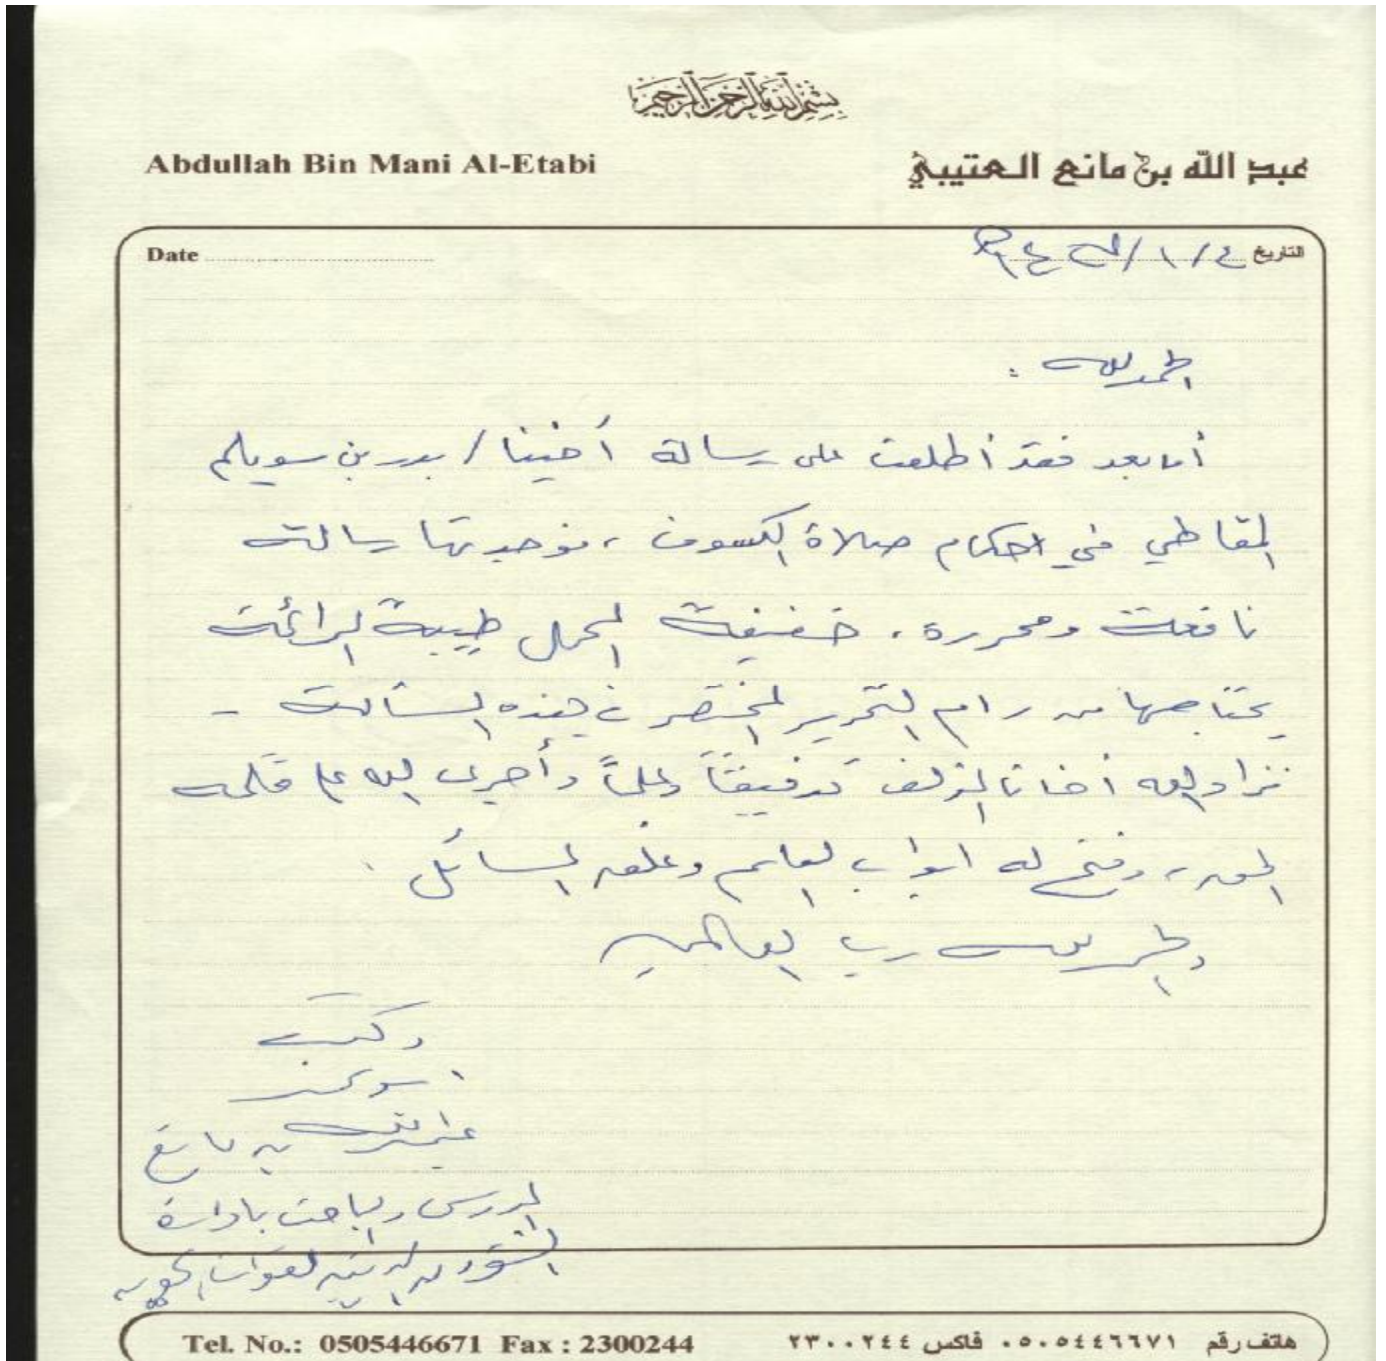 بسم الله الرحمن الرحيم
Abdullah Bin Mani Al-Etabi
عبد الله بن مانع العتيبي
Date
التاريخ ٤/١/
الحمد لله :
أما بعد فقد أطلعت على رسالة أخينا / بدر بن سويلم
المقاطي في احكام صلاة الكسوف ، فوجدتها رسالة
نافعة ومحررة ، خفيفة المحمل طيبة الرائحة
يحتاجها من رام التحرير المختصر في هذه
فزاد الله أخانا المؤلف توفيقاً وعلماً وأجرى الله على قلمه
الحق ، وفتح له ابواب العلم المسائل .
والحمد لله رب العالمين
وكتب
عبدالله بن مانع
المدرس والباحث بادارة
الشؤون الدينية للقوات الجوية
Tel. No.: 0505446671 Fax : 2300244
هاتف رقم ٠٥٠٥٤٤٦٦٧١ فاكس ٢٣٠٠٢٤٤